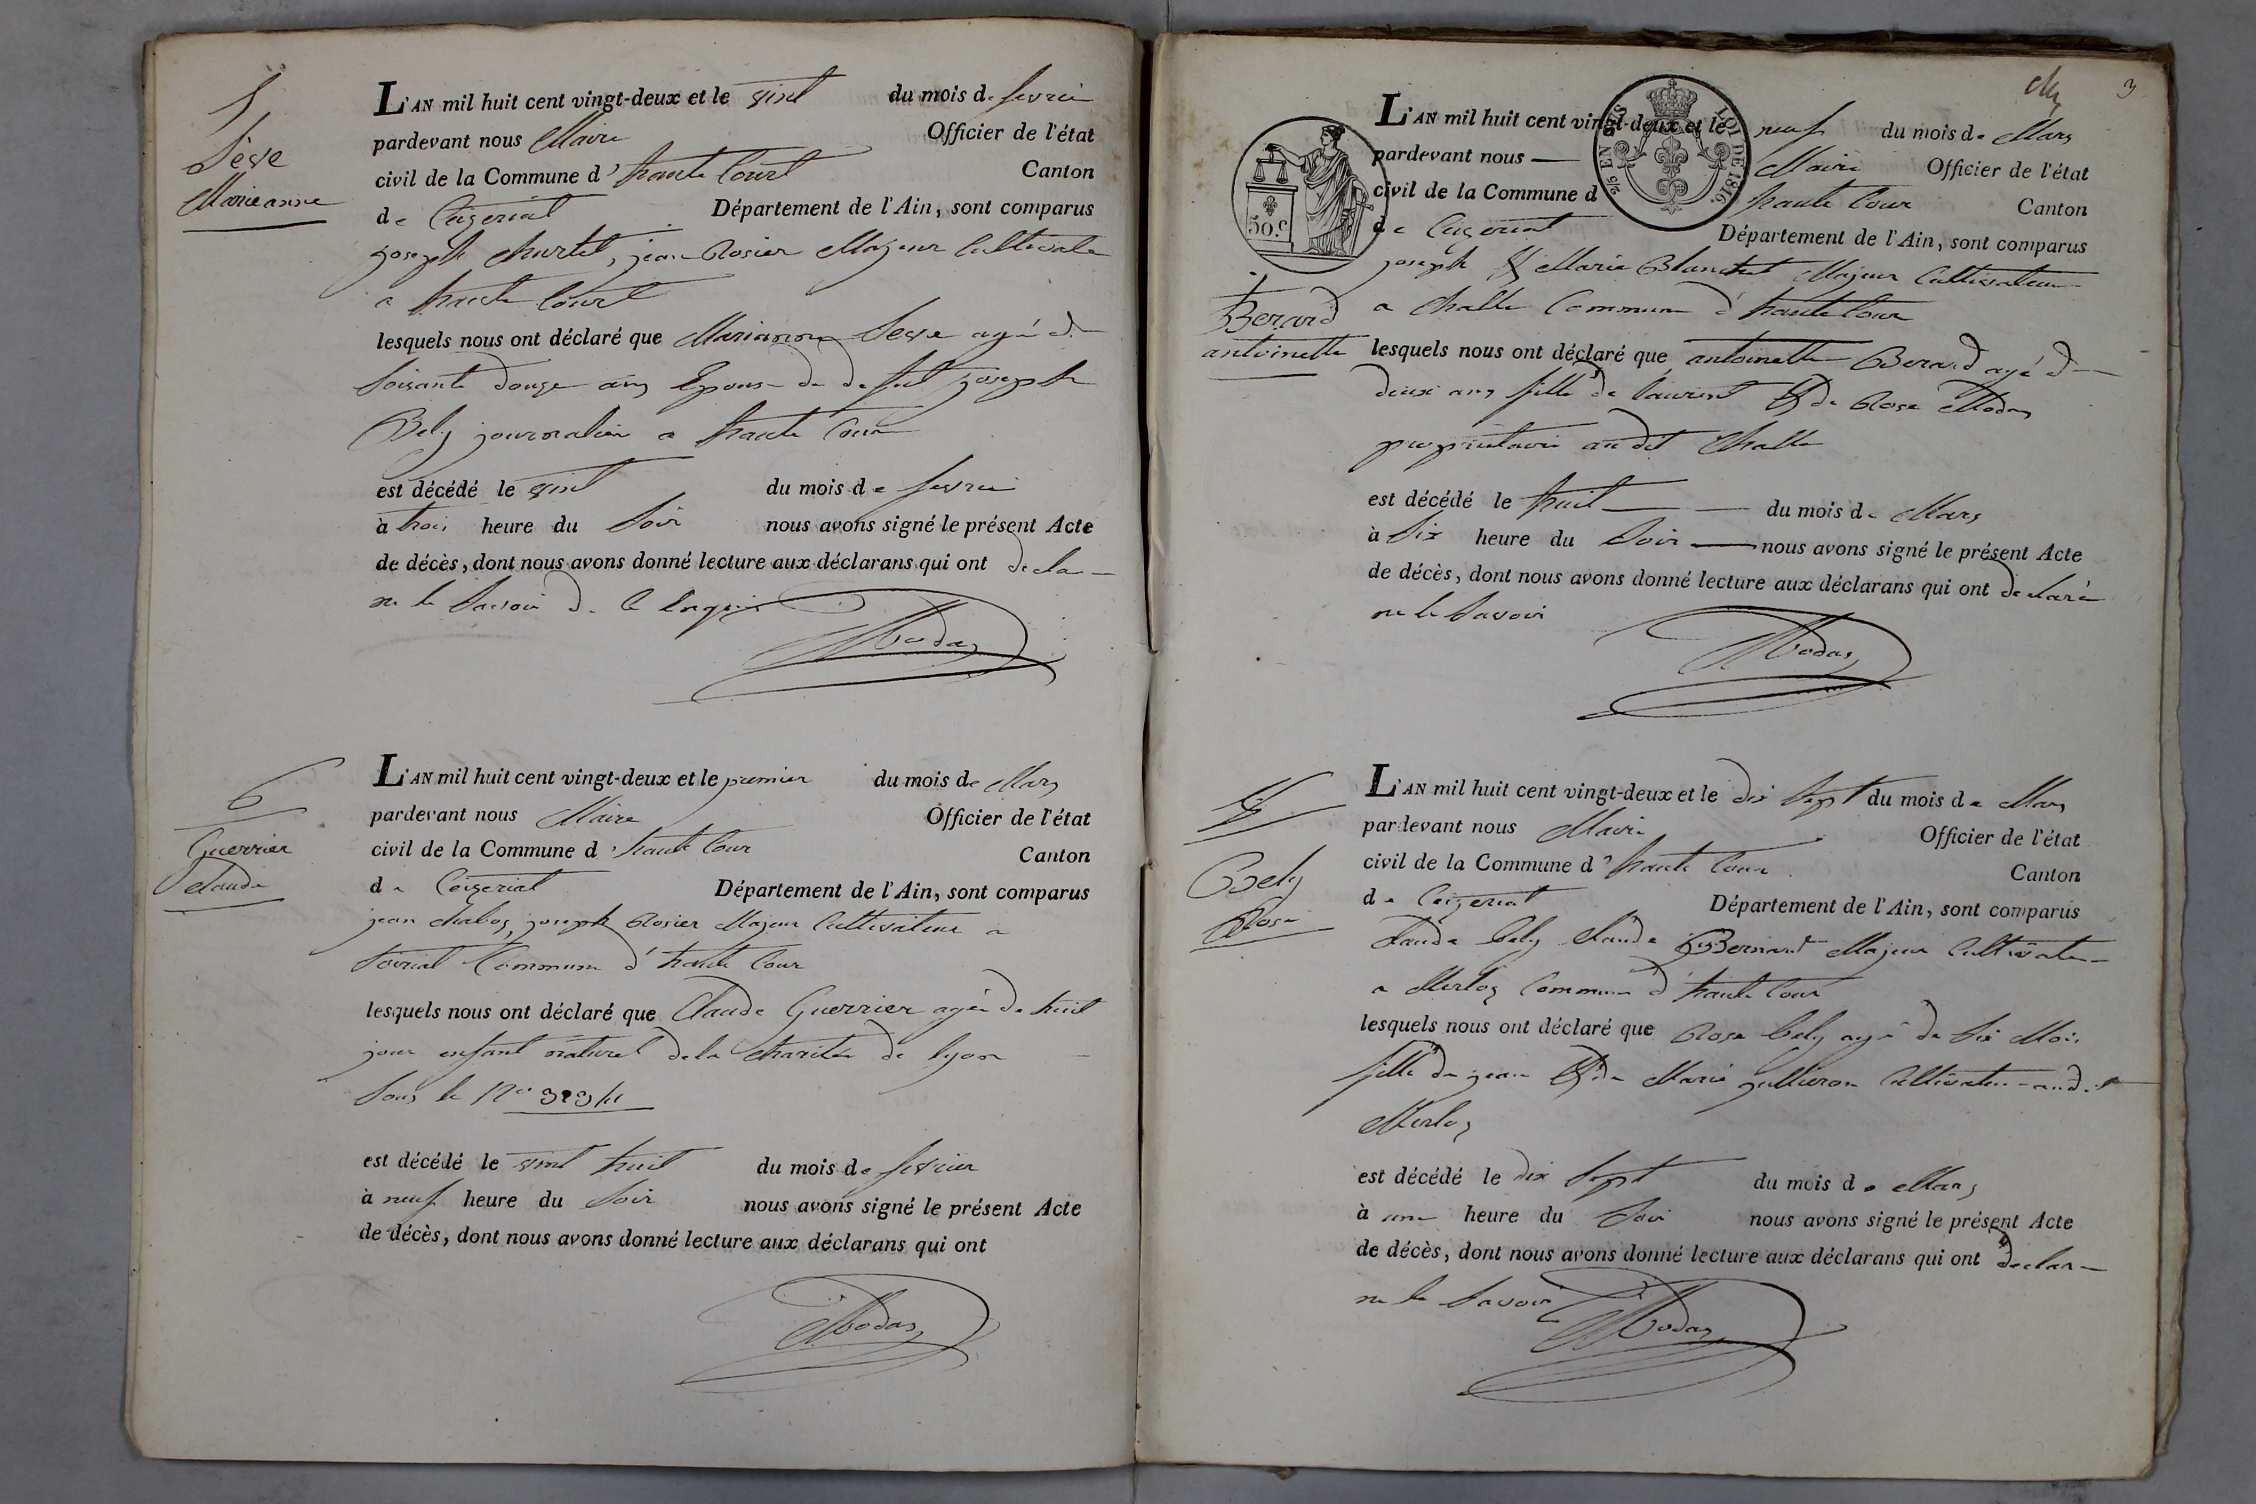 5
Sève
Marieanne
L'AN mil huit cent vingt-deux et le vint du mois de fevrié
pardevant nous Maire Officier de l'état
civil de la Commune d'haute Court Canton
de Ceizeriat Département de l'Ain, sont comparus
joseph churlet, jean Rosier Majeur Cultivate
a haute Court
lesquels nous ont déclaré que Marianne Seve agé de
soisante douze ans Epouse de defunt joseph
Bely journalier a haute Cour
est décédé le vint du mois de fevrié
à trois heure du Soir nous avons signé le présent Acte
de décès, dont nous avons donné lecture aux déclarans qui ont decla
ne le Savoir de ce enquis
Modas
6
Guerrier
Claude
L'AN mil huit cent vingt-deux et le premier du mois de Mars
pardevant nous Maire Officier de l'état
civil de la Commune d'haute Cour Canton
de Ceizeriat Département de l'Ain, sont comparus
jean chabos, joseph Rosier Majeur Cultivateur a
Commune d'haute Cour
lesquels nous ont déclaré que Claude Guerrier agée de huit
jour enfant naturel de la charitée de lyon
Sous le N°
est décédé le vint huit du mois de fevrier
à neuf heure du Soir nous avons signé le présent Acte
de décès, dont nous avons donné lecture aux déclarans qui ont
Modas
3
50.c
2/5 EN SUS
LOI DE 1816.
L'AN mil huit cent vingt-deux et le neuf du mois de Mars
pardevant nous Maire Officier de l'état
civil de la Commune d haute Cour Canton
de Ceizeriat Département de l'Ain, sont comparus
joseph & Marie Blanchet Majeur Cultivateur
Berard
antoinette
a challe Commune d'haute Cour
lesquels nous ont déclaré que antoinette Berard agé de
deux ans fille de laurent & de Rose Modas
proprietaire au dit challe
est décédé le huit du mois de Mars
à Six heure du Soir nous avons signé le présent Acte
de décès, dont nous avons donné lecture aux déclarans qui ont declaré
ne le Savoir
Modas
Bely
Rose
L'AN mil huit cent vingt-deux et le dix Sept du mois de Mars
pardevant nous Maire Officier de l'état
civil de la Commune d'haute Cour Canton
de Ceizeriat Département de l'Ain, sont comparus
Claude bely Claude Bernard Majeur Cultivateu
a Merloz Commune d'haute Cour
lesquels nous ont déclaré que Rose bely agé de Six Mois
fille de jean & de Marie Cultivateur audit
Merloz
est décédé le dix Sept du mois de Mars
à une heure du Soir nous avons signé le présent Acte
de décès, dont nous avons donné lecture aux déclarans qui ont declare
ne le Savoir
Modas